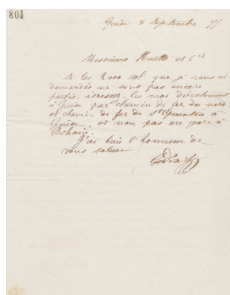 804
Guise 8 Septembre 77
Messieurs Hurtu et Cie
Si les 2000 vol que je vous ai
demandés ne sont pas encore
partis, adressez les moi directement
à Guise par chemin de fer du nord
et chemin de fer de St Quentin à
Guise, et non pas en gare à
Bohain.
J'ai bien l'honneur de
vous saluer.
Godin